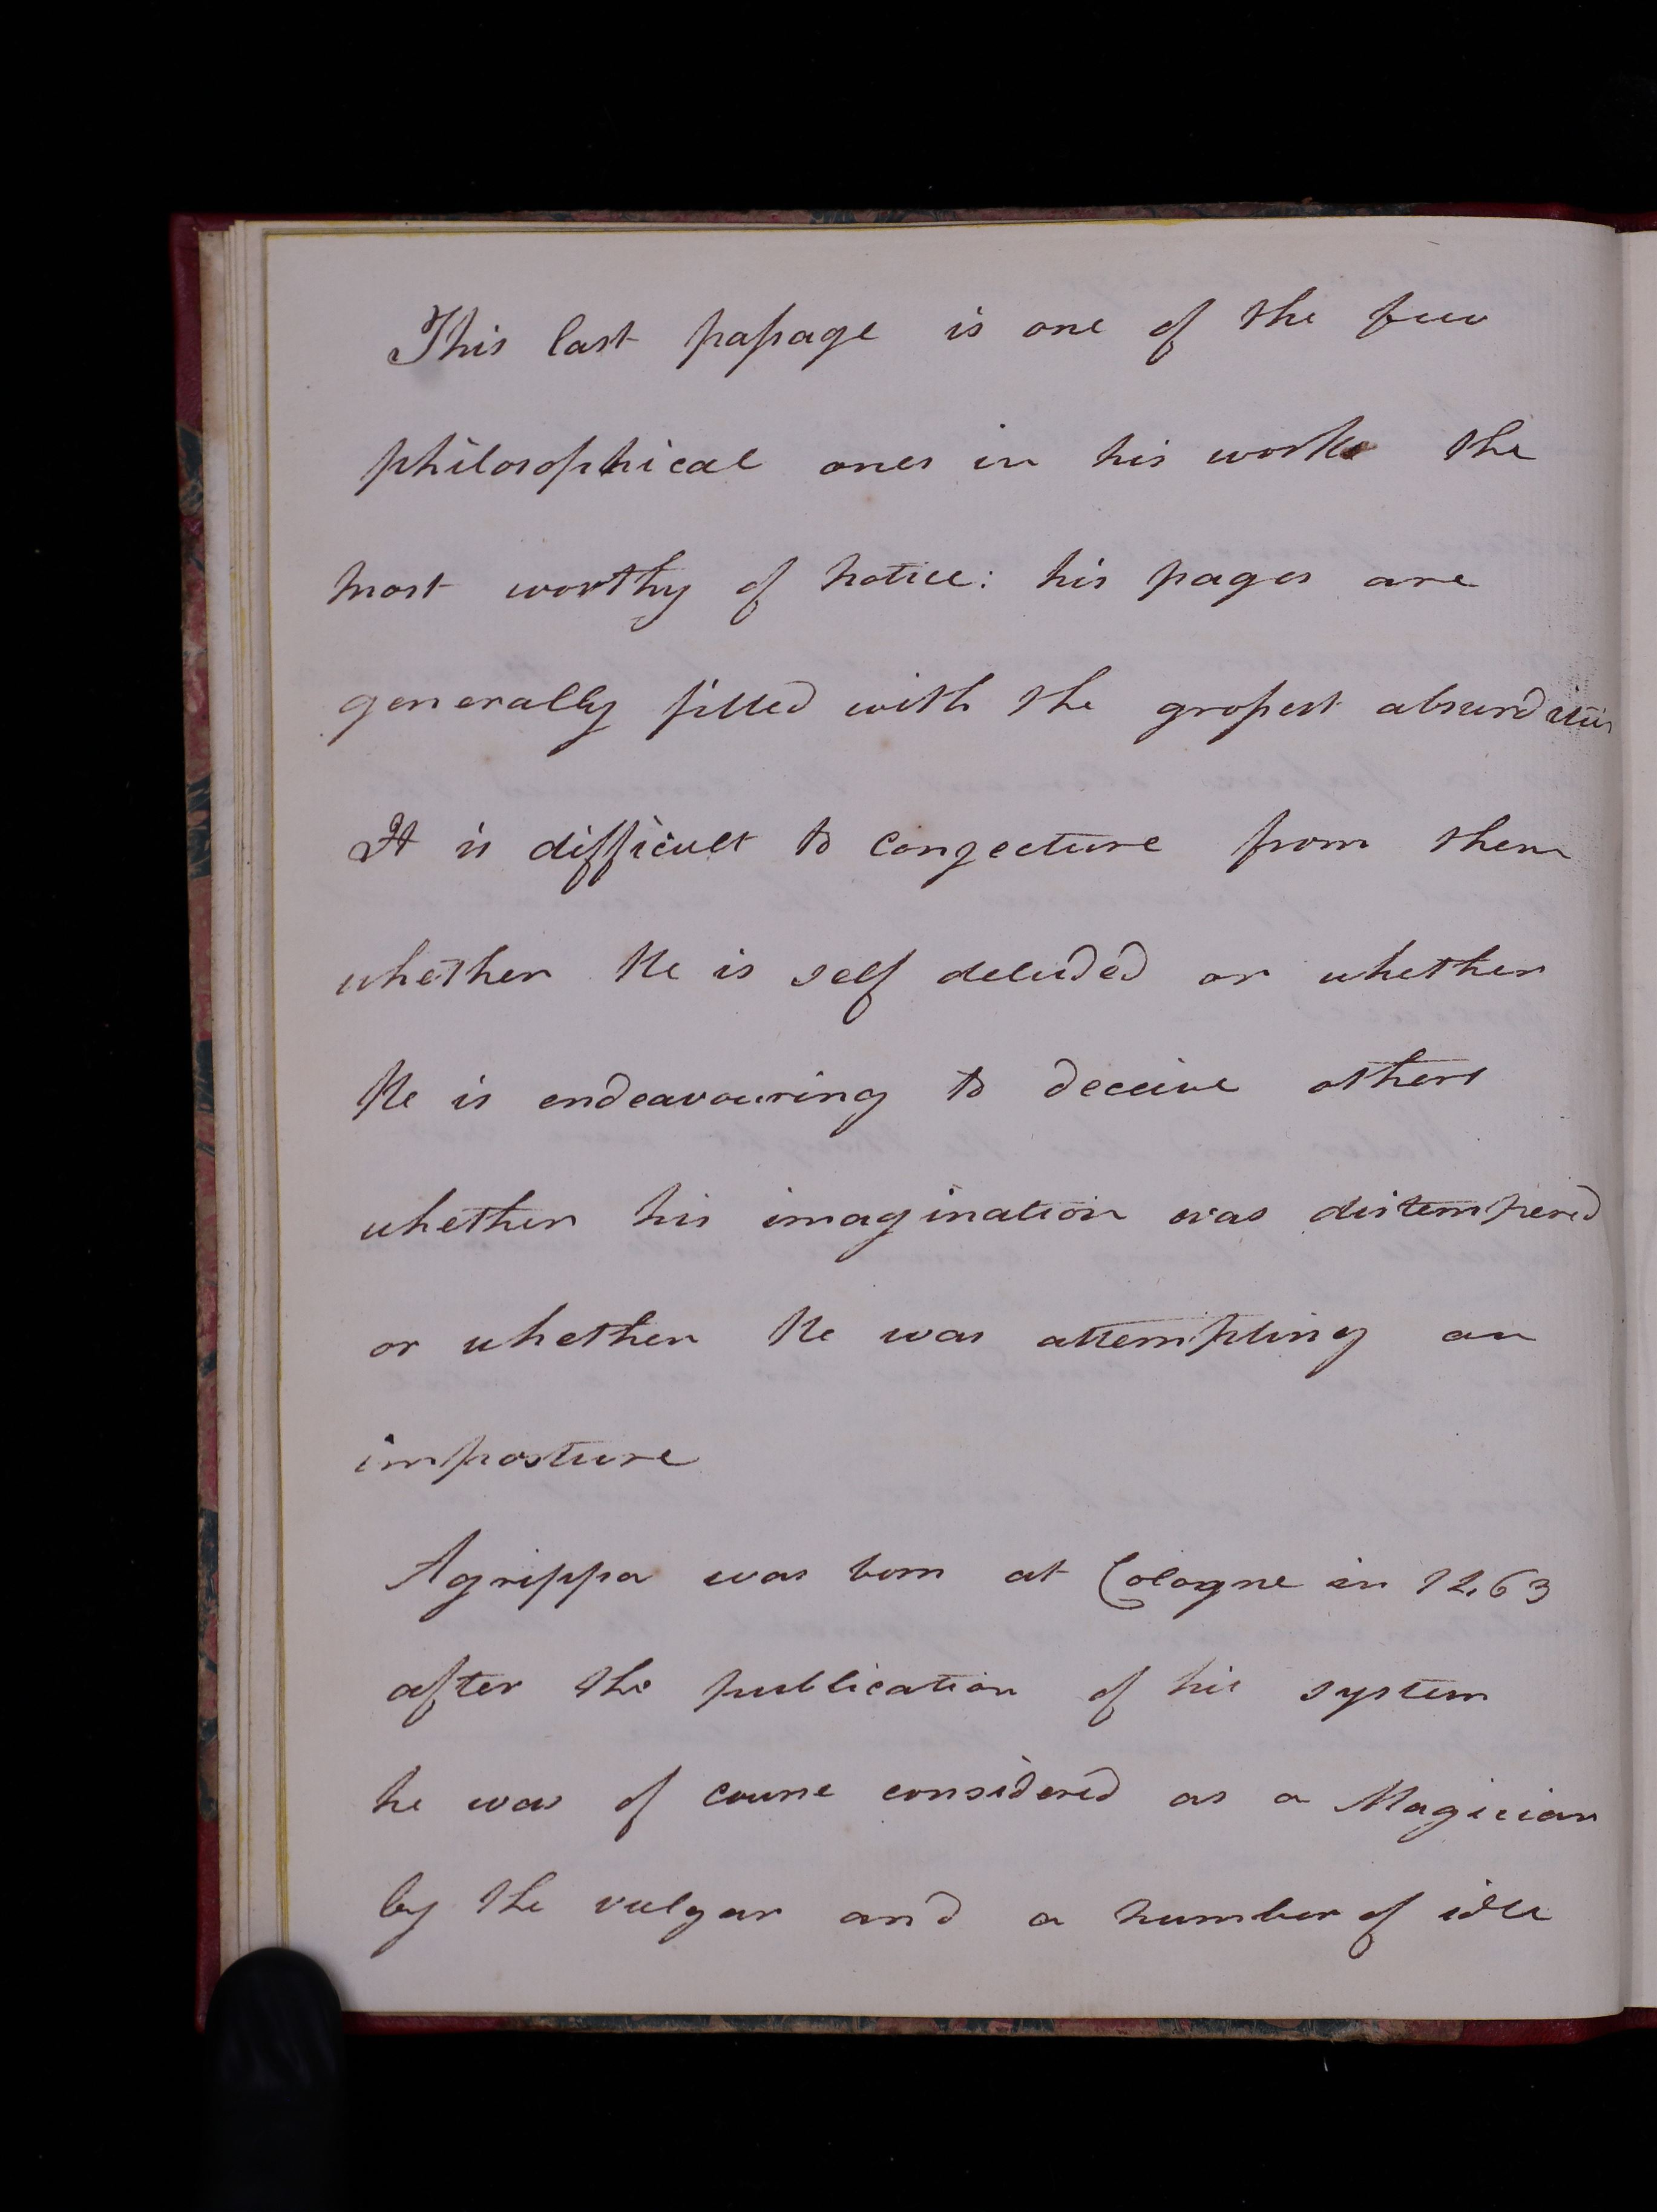 This last paſsage is one of the few
philosophical ones in his works the
most worthy of notice: his pages are
generally filled with the groſsest absurdities
It is difficult to congecture from them
whether He is self deluded or whether
He is endeavouring to deceive others
whether his imagination was distempered
or whether He was attempting an
imposture
Agrippa was born at Cologne in 1263
after the publication of his system
he was of course considered as a Magician
by the vulgar and a number of idle